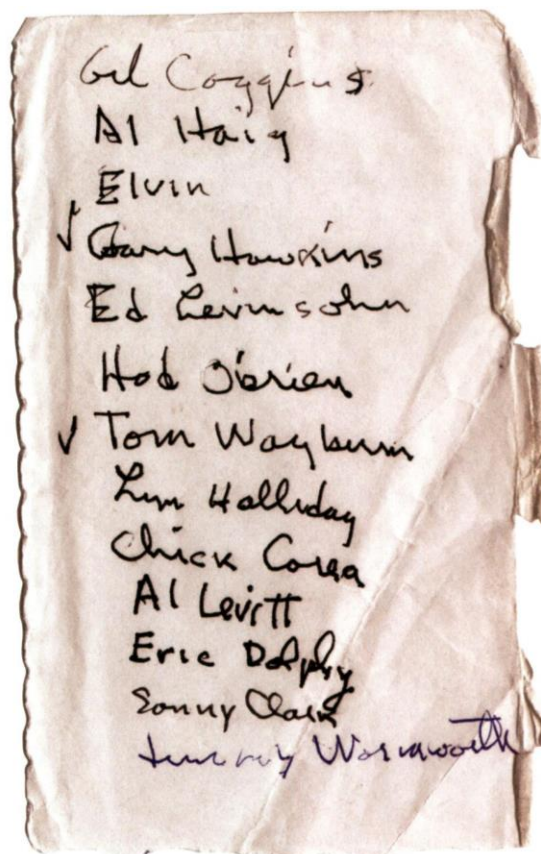 Gil Coggins
Al Haig
Elvin
√ Gary Hawkins
Ed Levinsohn
Hod O'brien
√ Tom Wayburn
Lyn Halliday
Chick Corea
Al Levitt
Eric Dolphy
Sonny Clark
Jimmy Wormworth